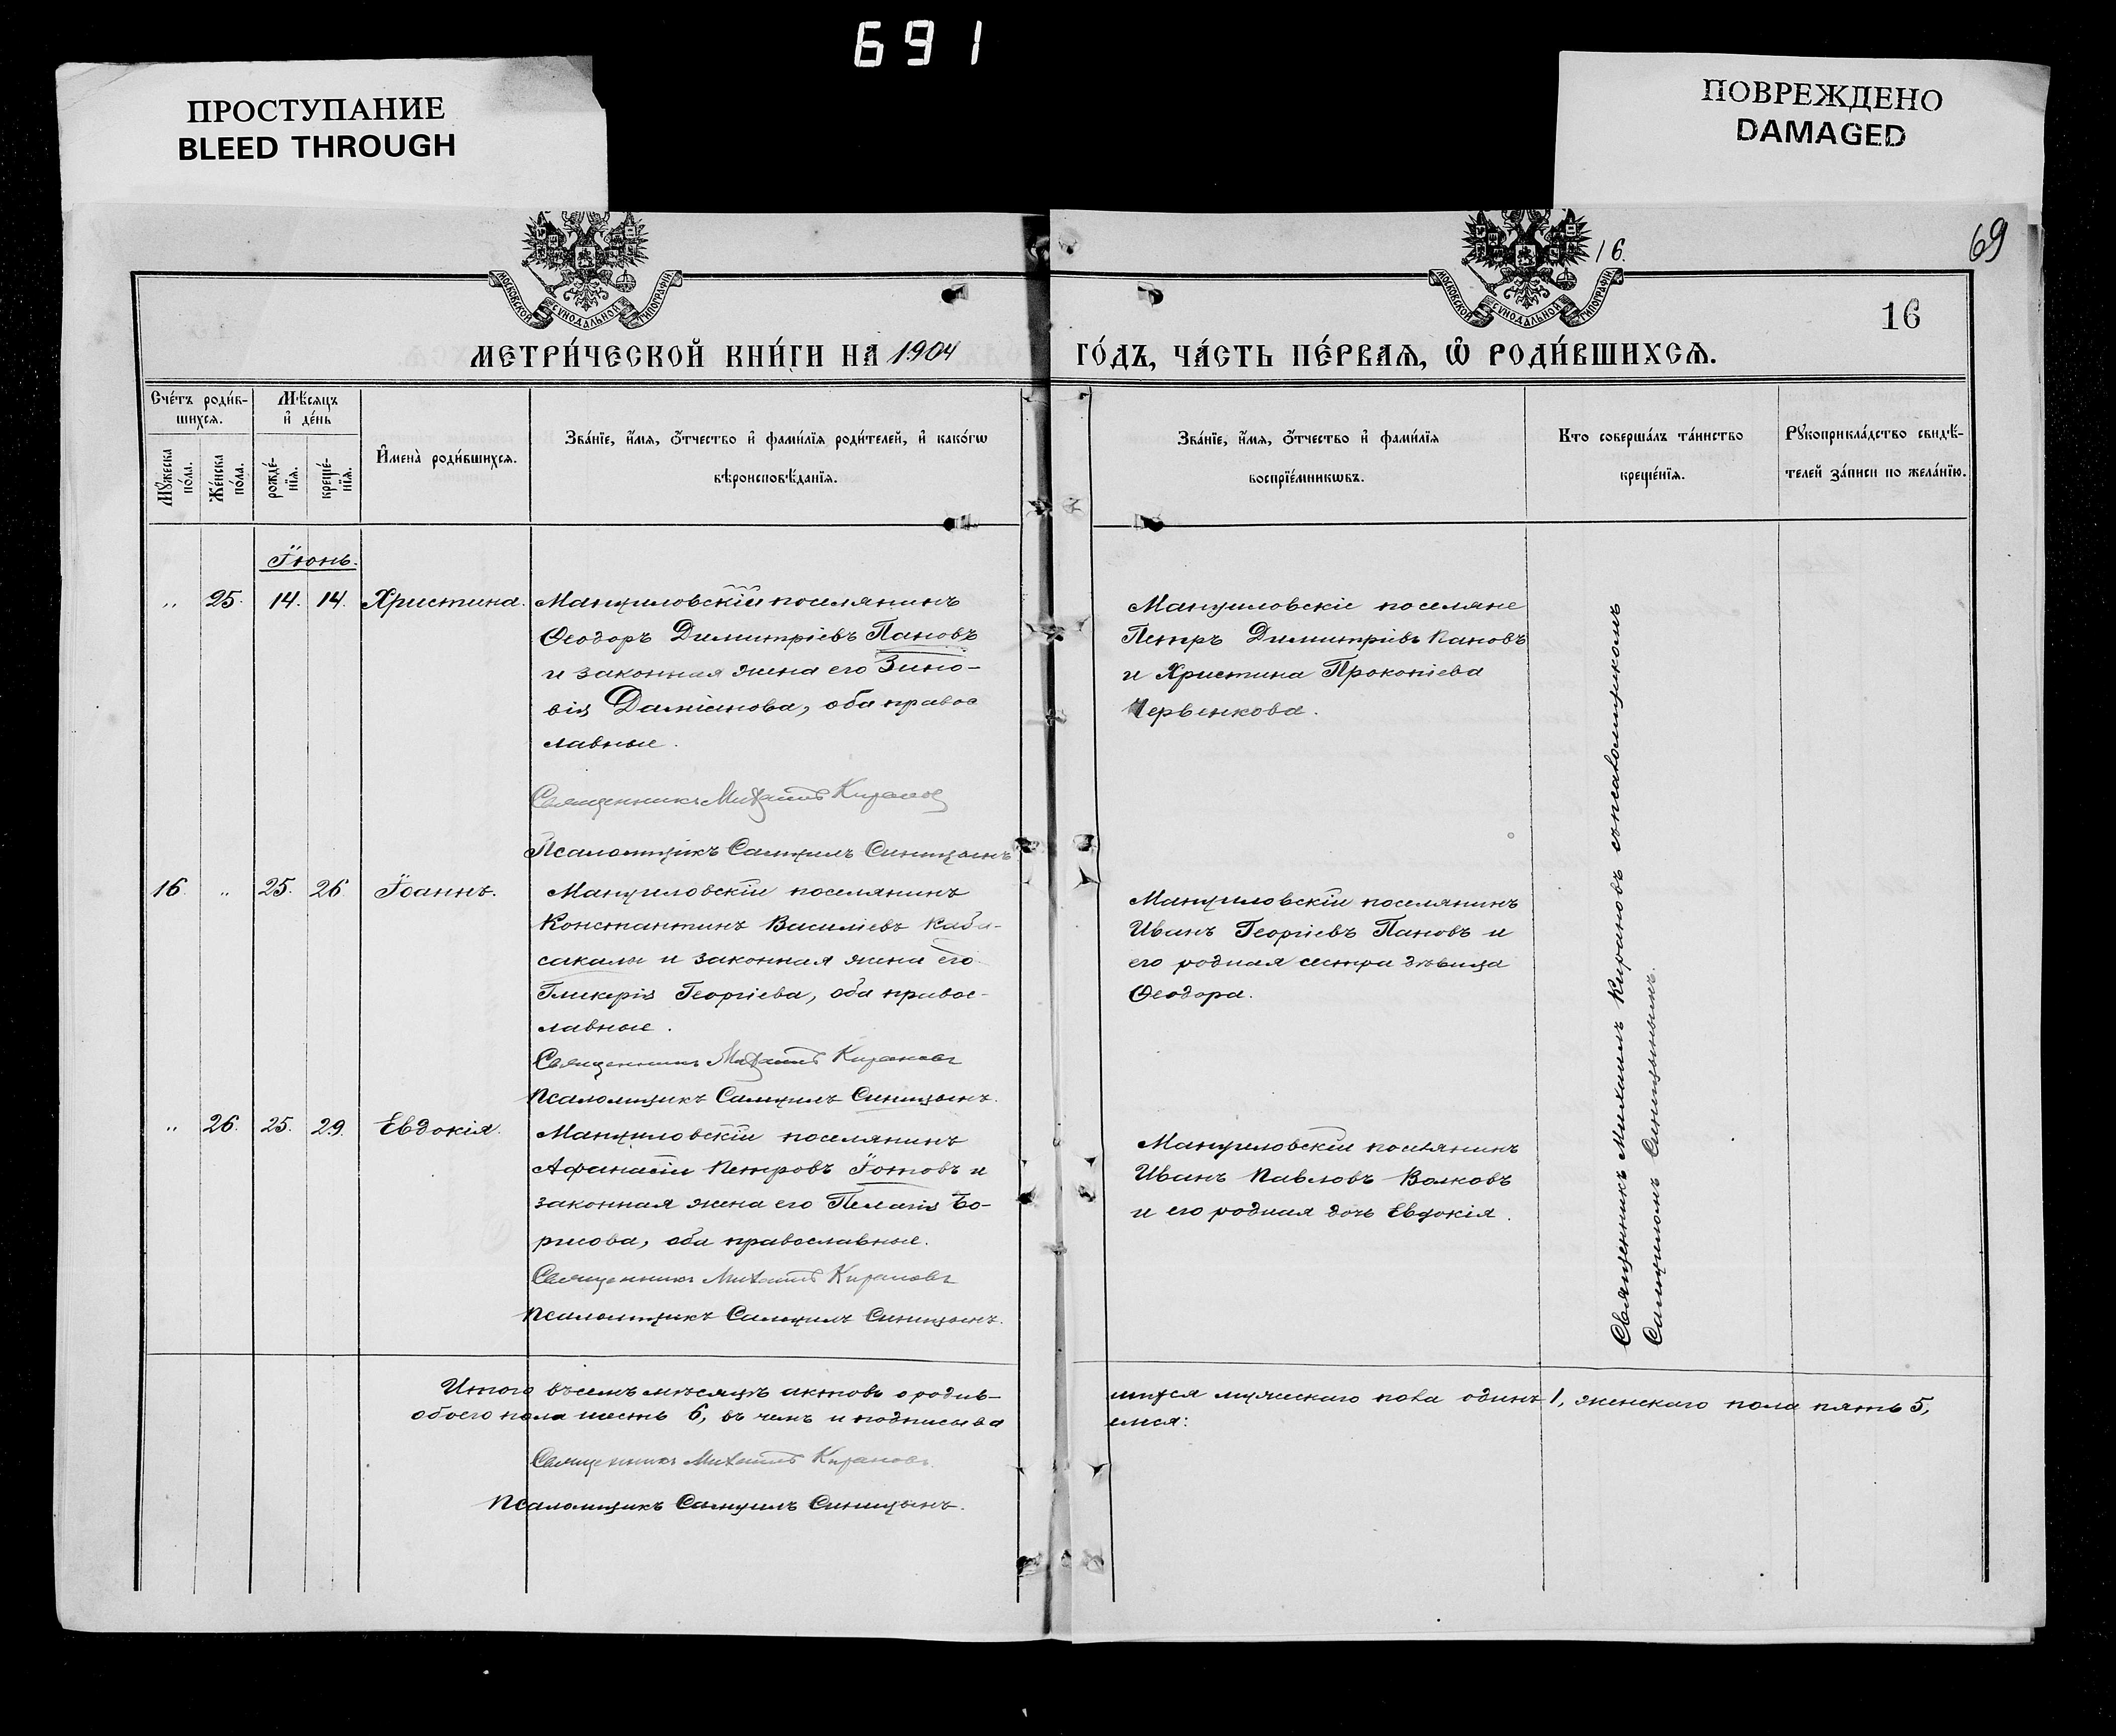 691
ПРОСТУПАНИЕ
BLEED THROUGH
ПОВРЕЖДЕНО
DAMAGED
69
16.
16
МОСКОВСКОЙ СѴНОДАЛЬНОЙ ТИПОГРАФІИ
МОСКОВСКОЙ СѴНОДАЛЬНОЙ ТИПОГРАФІИ
МЕТРИ́ЧЕСКОЙ КНИ́ГИ НА 1904
ГО́ДЪ, ЧА́СТЬ ПЕ́РВАѦ, Ѡ҆ РОДИ́ВШИХСѦ.
Сче́тъ роди́в-
шихсѧ.
Мꙋжеска по́ла.
Же́нска по́ла.
Мѣ́сѧцъ
и҆ де́нь
рожде́-
нїѧ.
креще́-
нїѧ.
И҆мена̀ роди́вшихсѧ.
Зва́нїе, и҆́мѧ, ѻ҆́тчество и҆ фами́лїѧ роди́телей, и҆ како́гѡ
вѣроисповѣ́данїѧ.
Зва́нїе, и҆́мѧ, ѻ҆́тчество и҆ фами́лїѧ
воспрїе́мникѡвъ.
Кто соверша́лъ та́инство
креще́нїѧ.
Рꙋкоприкла́дство свидѣ́-
телей за́писи по жела́нїю.
Іюнь.
" 25. 14. 14. Христина.
Мануиловскій поселянинъ
Ѳеодоръ Димитріевъ Пановъ
и законная жена его Зино-
вія Даміанова, оба правос
лавные.
Священникъ Михаилъ Кирановъ
Псаломщикъ Самуилъ Синицынъ
Мануиловскіе поселяне
Петръ Димитріевъ Пановъ
и Христина Прокопіева
Червенкова.
16. " 25. 26 Іоаннъ.
Мануиловскій поселянинъ
Константинъ Василіевъ Каба-
сакалы и законная жена его
Гликерія Георгіева, оба правос-
лавные.
Священникъ Михаилъ Кирановъ
Псаломщикъ Самуилъ Синицынъ.
Мануиловскій поселянинъ
Иванъ Георгіевъ Пановъ и
его родная сестра дѣвица
Ѳеодора.
" 26. 25. 29. Евдокія.
Мануиловскій поселянинъ
Афанасій Петровъ Іотовъ и
законная жена его Пелагія Бо-
рисова, оба православные.
Священникъ Михаилъ Кирановъ
Псаломщикъ Самуилъ Синицынъ.
Мануиловскій поселянинъ
Иванъ Павловъ Волковъ
и его родная дочь Евдокія.
Священникъ Михаилъ Кирановъ съ псаломщикомъ
Самуиломъ Синицынымъ.
Итого въ семъ мѣсяцѣ актовъ о родив-
шихся мужескаго пола одинъ 1, женскаго пола пять 5,
обоего пола шесть 6, въ чемъ и подписыва
емся:
Священникъ Михаилъ Кирановъ.
Псаломщикъ Самуилъ Синицынъ.